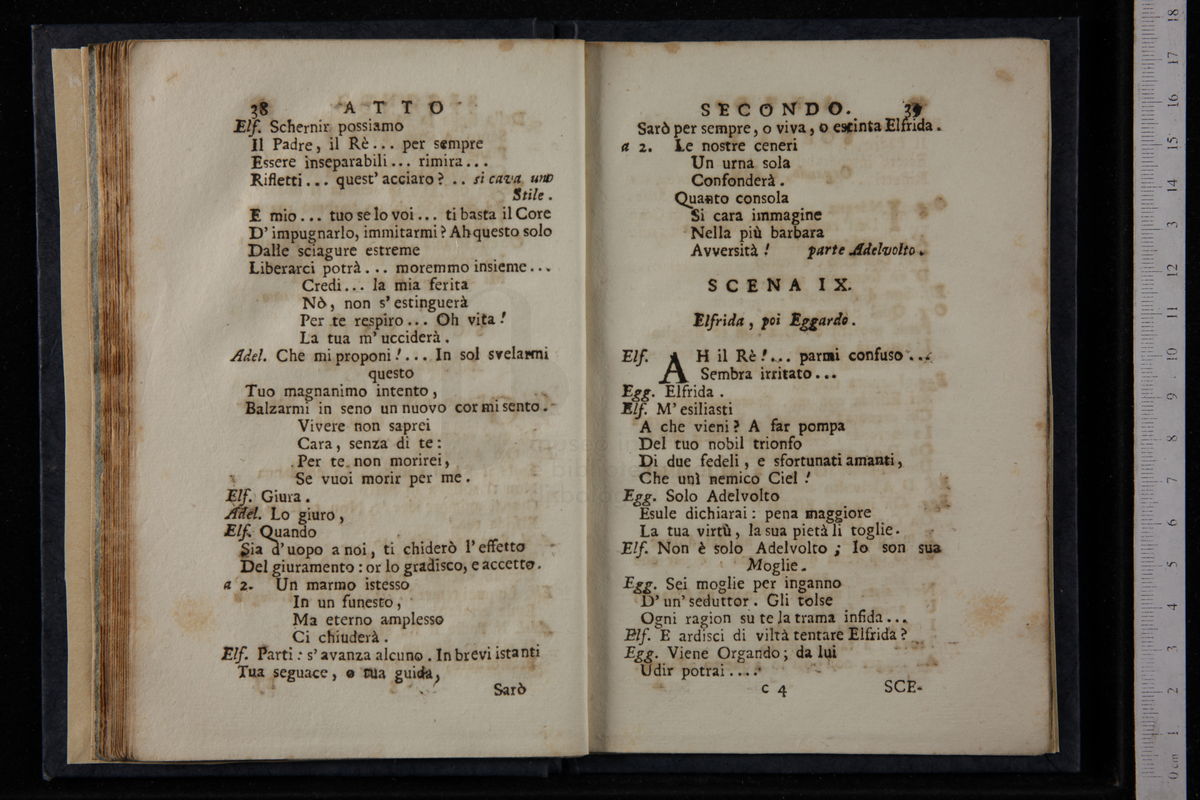 38 ATTO
Elf. Schernir possiamo
Il Padre, il Rè... per sempre
Essere inseparabili... rimira...
Rifletti... quest' acciaro? .. si cava uno
Stile.
E mio... tuo se lo voi... ti basta il Core
D' impugnarlo, immitarmi? Ah questo solo
Dalle sciagure estreme
Liberarci potrà... moremmo insieme...
Credi... la mia ferita
Nò, non s' estinguerà
Per te respiro... Oh vita!
La tua m' ucciderà.
Adel. Che mi proponi!... In sol svelarmi
questo
Tuo magnanimo intento,
Balzarmi in seno un nuovo cor mi sento.
Vivere non saprei
Cara, senza di te:
Per te non morirei,
Se vuoi morir per me.
Elf. Giura.
Adel. Lo giuro,
Elf. Quando
Sia d'uopo a noi, ti chiderò l' effetto
Del giuramento: or lo gradisco, e accetto.
a 2. Un marmo istesso
In un funesto,
Ma eterno amplesso
Ci chiuderà.
Elf. Parti: s' avanza alcuno. In brevi istanti
Tua seguace, o tua guida,
Sarò
SECONDO. 39
Sarò per sempre, o viva, o estinta Elfrida.
a 2. Le nostre ceneri
Un urna sola
Confonderà.
Quanto consola
Si cara immagine
Nella più barbara
Avversità! parte Adelvolto.
SCENA IX.
Elfrida, poi Eggardo.
Elf. AH il Rè!... parmi confuso...
Sembra irritato...
Egg. Elfrida.
Elf. M' esiliasti
A che vieni? A far pompa
Del tuo nobil trionfo
Di due fedeli, e sfortunati amanti,
Che unì nemico Ciel!
Egg. Solo Adelvolto
Esule dichiarai: pena maggiore
La tua virtù, la sua pietà li toglie.
Elf. Non è solo Adelvolto; Io son sua
Moglie.
Egg. Sei moglie per inganno
D' un' seduttor. Gli tolse
Ogni ragion su te la trama infida...
Elf. E ardisci di viltà tentare Elfrida?
Egg. Viene Orgando; da lui
Udir potrai....
C 4 SCE-
0 cm 1 2 3 4 5 6 7 8 9 10 11 12 13 14 15 16 17 18